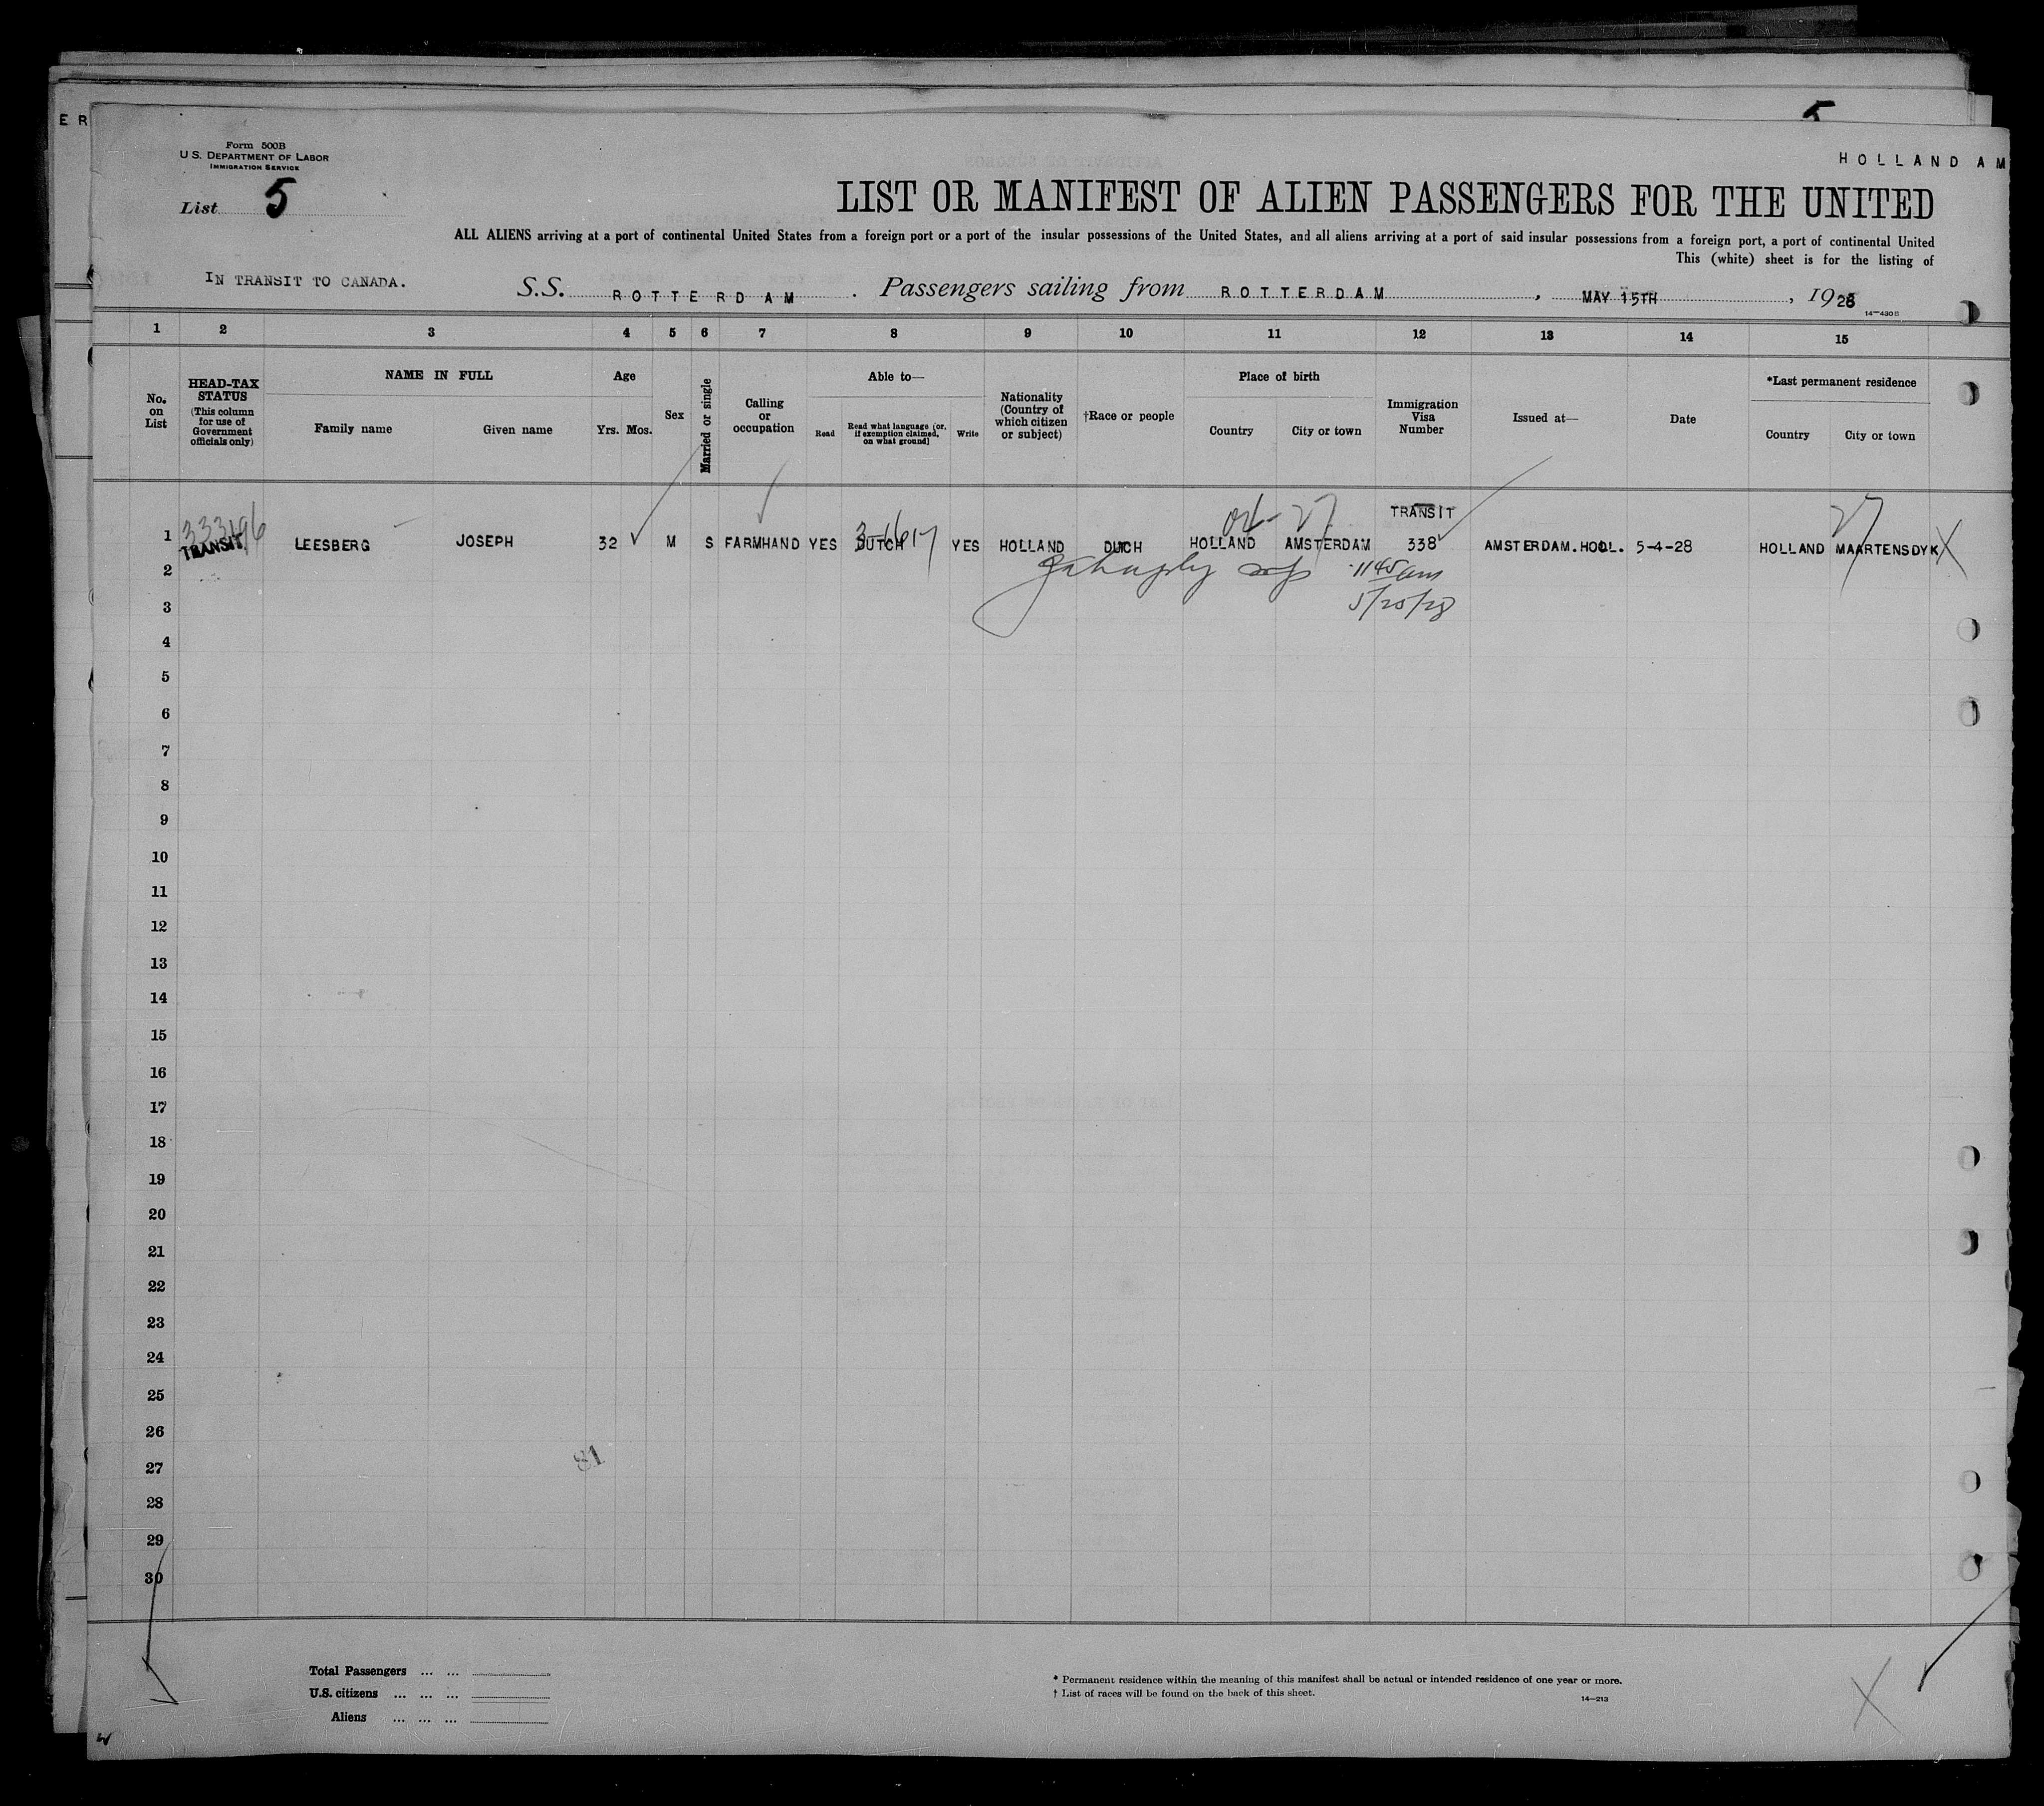 E R
5
Form 500B
U. S. DEPARTMENT OF LABOR
IMMIGRATION SERVICE
HOLLAND AM
List 5
LIST OR MANIFEST OF ALIEN PASSENGERS FOR THE UNITED
ALL ALIENS arriving at a port of continental United States from a foreign port or a port of the insular possessions of the United States, and all aliens arriving at a port of said insular possessions from a foreign port, a port of continental United
This (white) sheet is for the listing of
IN TRANSIT TO CANADA. S.S. ROTTERDAM. Passengers sailing from ROTTERDAM, MAY 15TH, 1928
14—430 B
1 2 3 4 5 6 7 8 9 10 11 12 13 14 15
No. on List
HEAD-TAX STATUS (This column for use of Government officials only)
NAME IN FULL
Family name Given name
Age
Yrs. Mos.
Sex
Married or single
Calling or occupation
Able to—
Read Read what language (or, if exemption claimed, on what ground) Write
Nationality (Country of which citizen or subject)
†Race or people
Place of birth
Country City or town
Immigration Visa Number
Issued at—
Date
*Last permanent residence
Country City or town
333196 27 TRANSIT 27
1 TRANSIT LEESBERG JOSEPH 32 M S FARMHAND YES DUTCH YES HOLLAND DUTCH HOLLAND AMSTERDAM 338 AMSTERDAM.HOLL. 5-4-28 HOLLAND MAARTENSDYK X
2 1145 am
3 5/25/28
4
5
6
7
8
9
10
11
12
13
14
15
16
17
18
19
20
21
22
23
24
25
26
27
28
29
30
81
Total Passengers ... ...
U.S. citizens ... ... ...
Aliens ... ... ...
* Permanent residence within the meaning of this manifest shall be actual or intended residence of one year or more.
† List of races will be found on the back of this sheet.
14—213
X